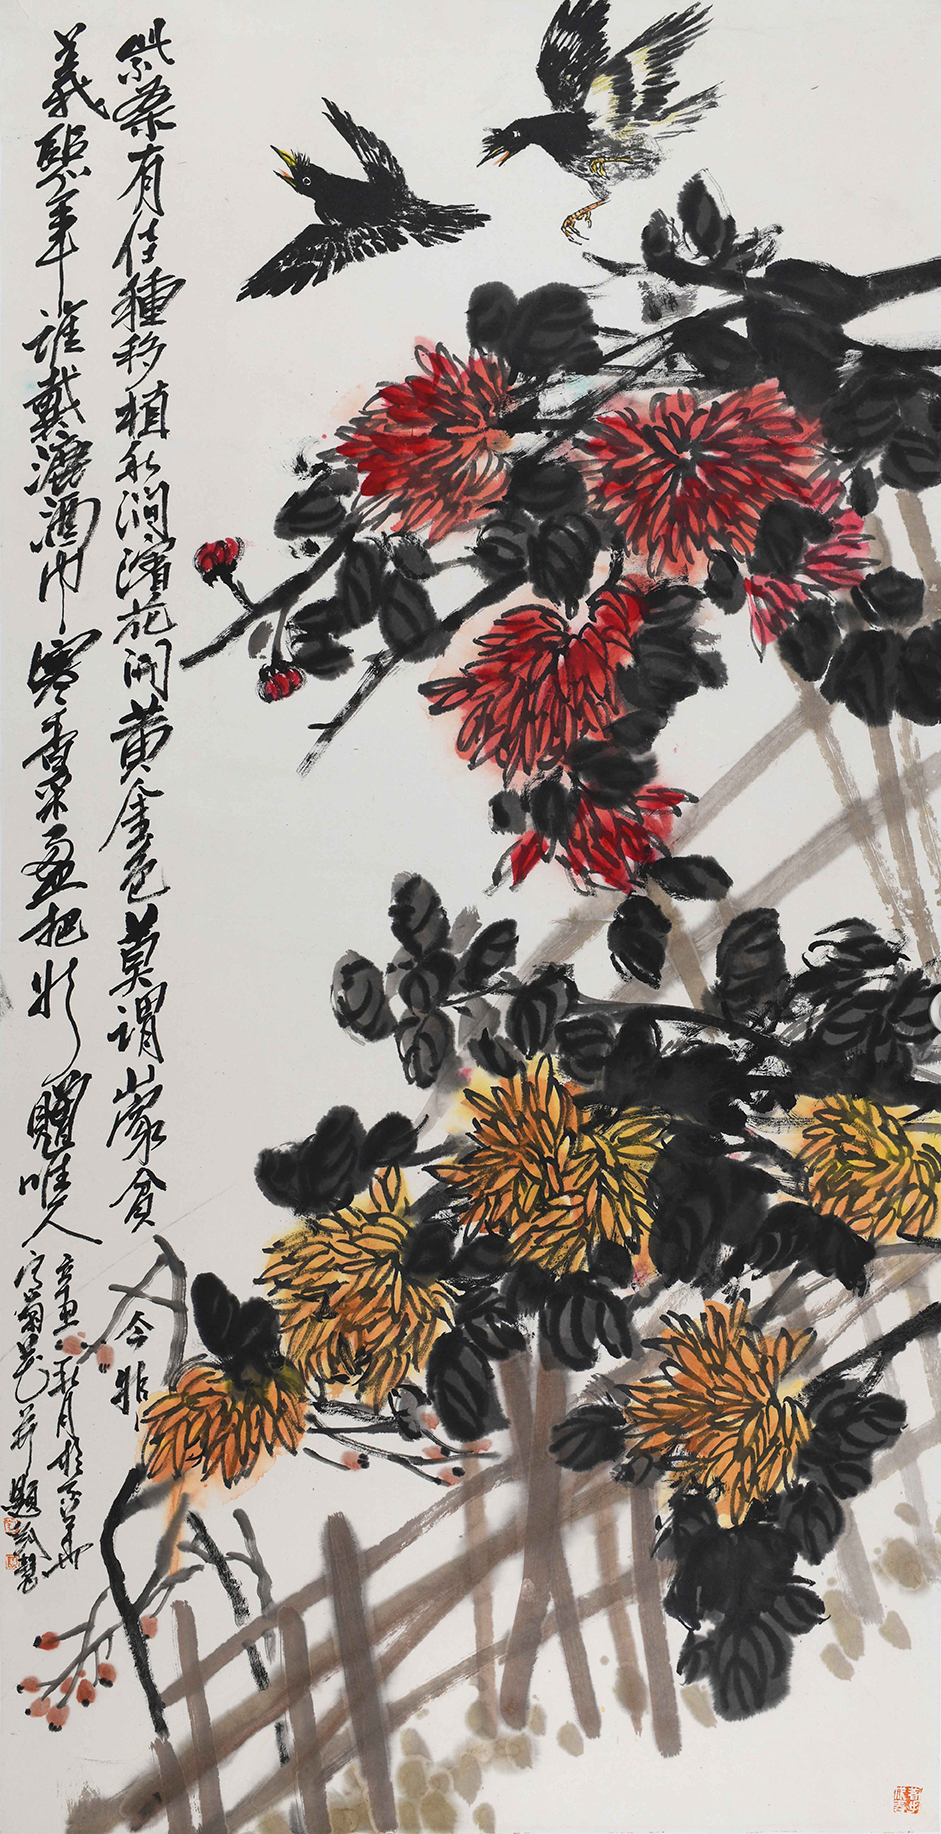 柴桑有佳種移植秋澗濱花開黃金色莫謂山家貧今非
義熙年誰戴漉酒巾寒香采盈把贈唯人
辛丑秋月於京華
寫菊花并題